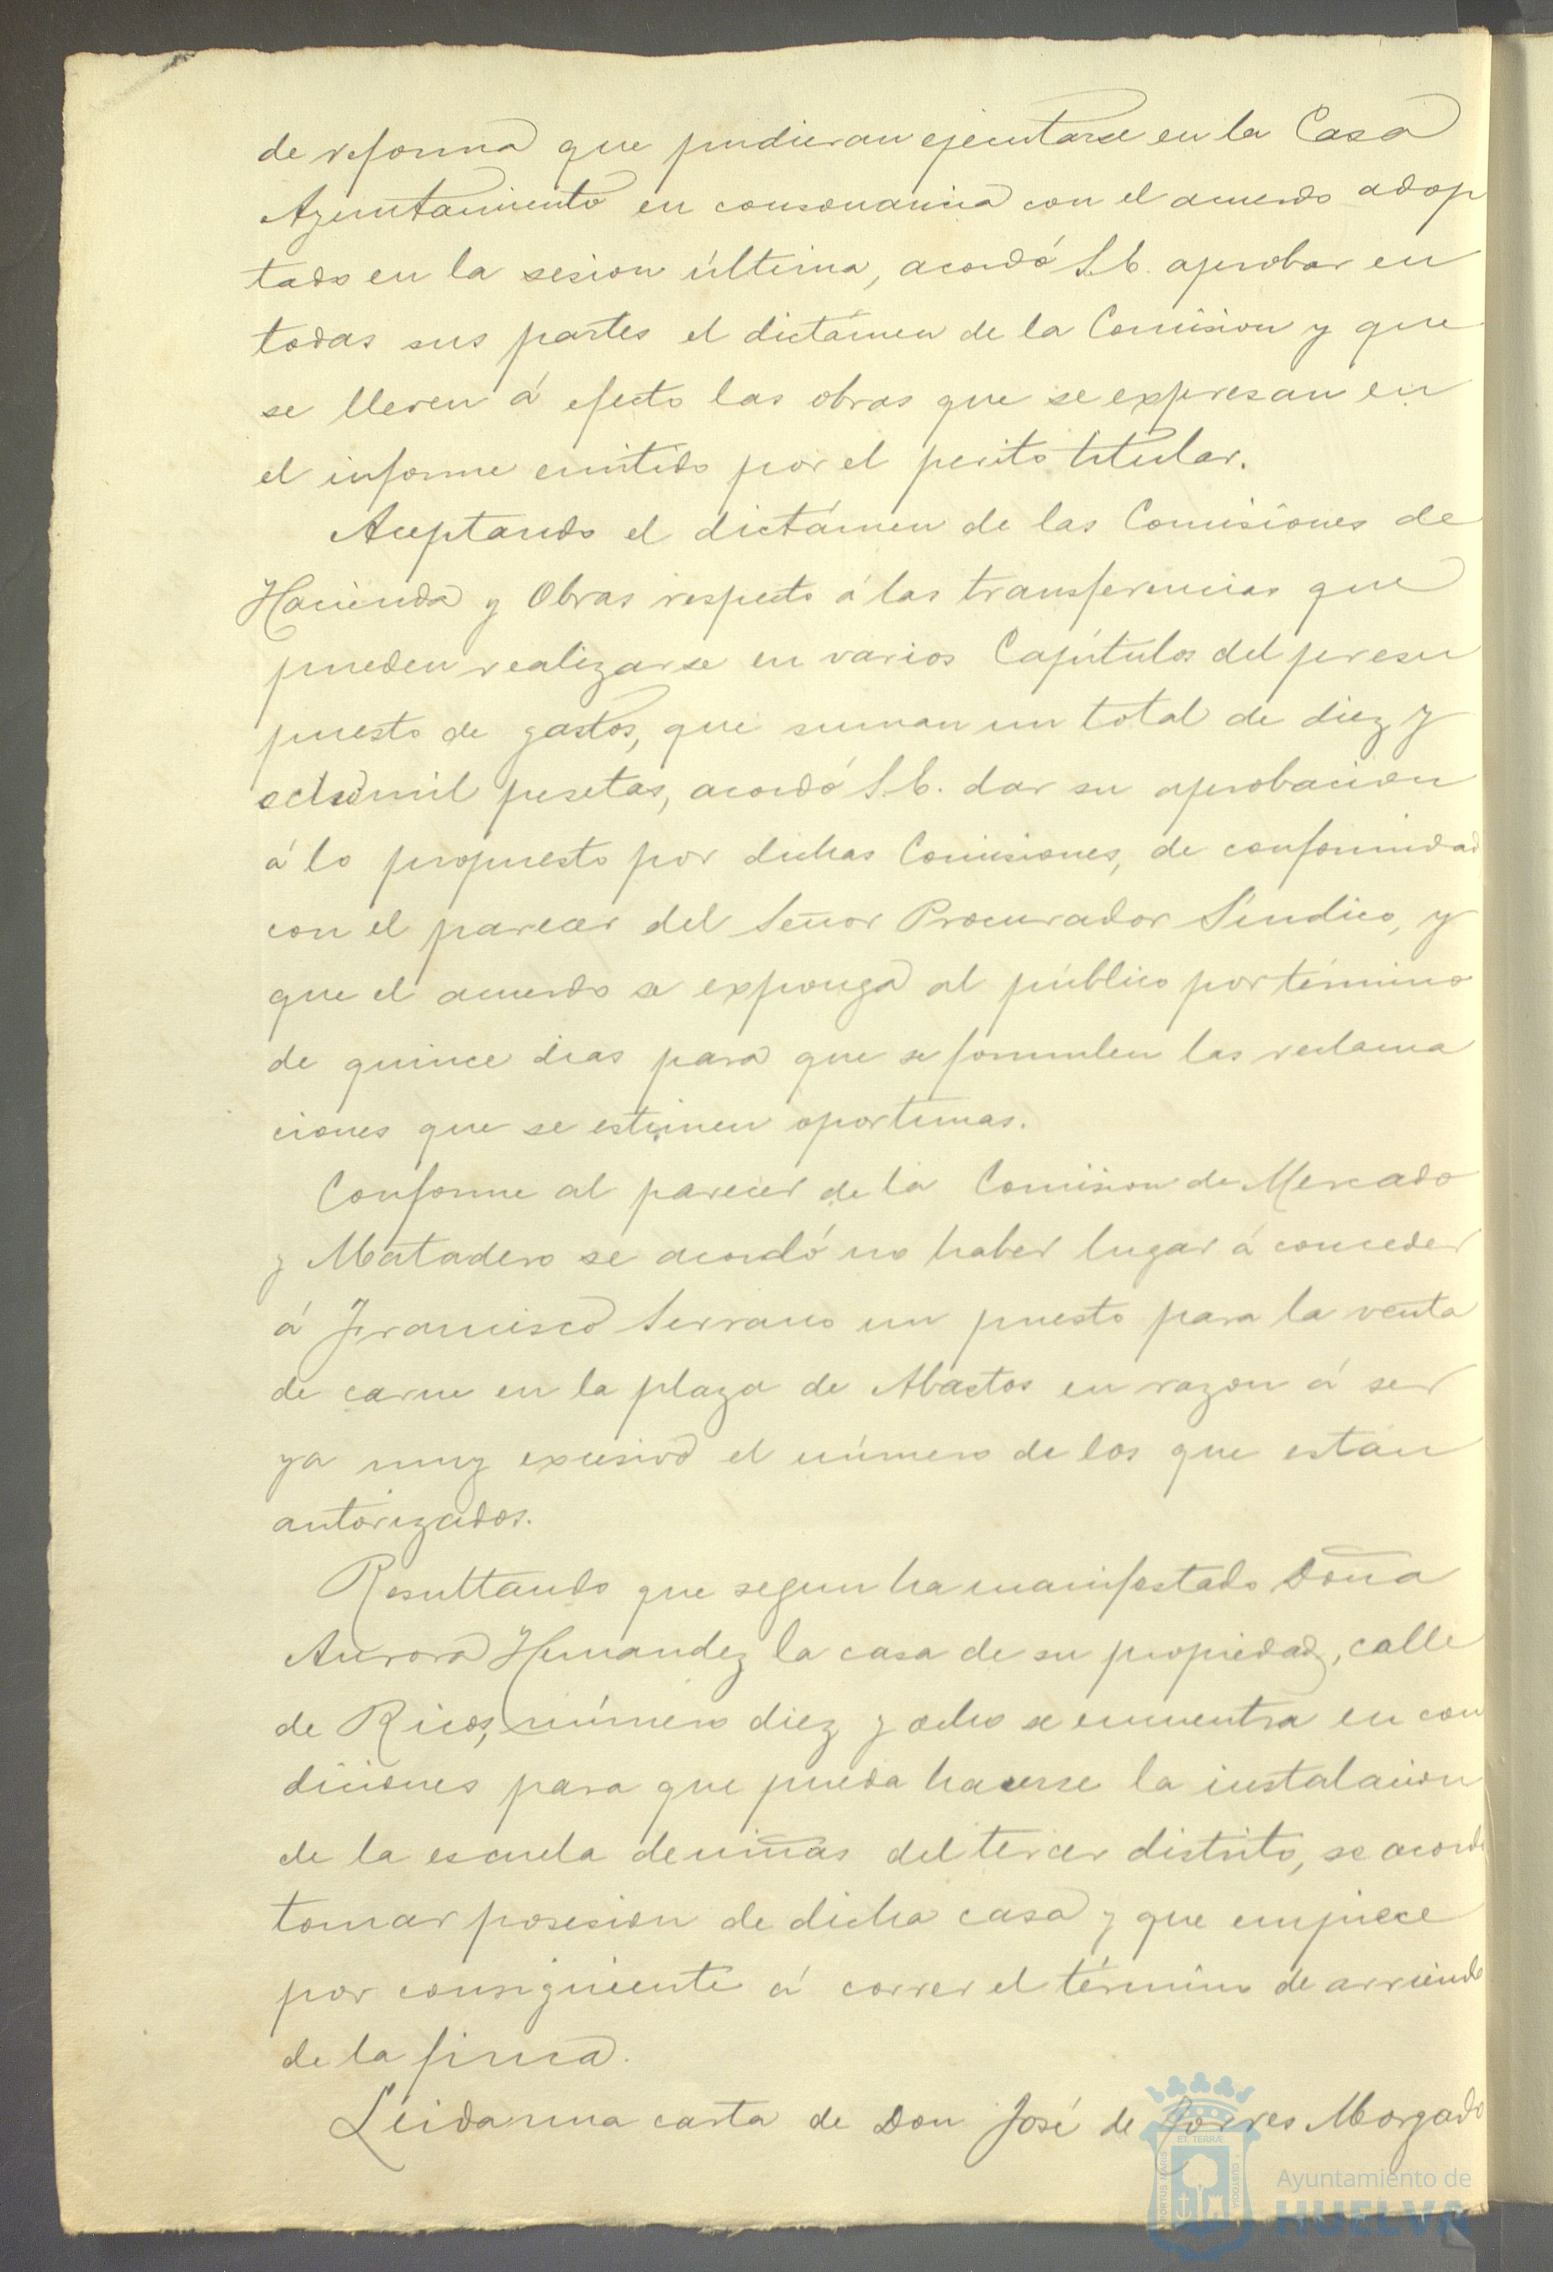 de reforma que pudieran ejecutarse en la Casa
Ayuntamiento en consonancia con el acuerdo adop
tado en la sesion última, acordó S. E. aprobar en
todas sus partes el dictámen de la Comision y que
se lleven á efecto las obras que se expresan en
el informe emitido por el perito titular.
Aceptando el dictámen de las Comisiones de
Hacienda y Obras respecto á las transferencias que
pueden realizarse en varios Capítulos del presu
puesto de gastos, que suman un total de diez y
ocho mil pesetas, acordó S. E. dar su aprobacion
á lo propuesto por dichas Comisiones, de conformidad
con el parecer del Señor Procurador Síndico, y
que el acuerdo se exponga al público por término
de quince dias para que se formulen las reclama
ciones que se estimen oportunas.
Conforme al parecer de la Comision de Mercado
y Matadero se acordó no haber lugar á conceder
á Francisco Serrano un puesto para la venta
de carne en la plaza de Abastos en razon á ser
ya muy excesivo el número de los que están
autorizados.
Resultando que segun ha manifestado Doña
Aurora Hernandez la casa de su propiedad, calle
de Ricos, número diez y ocho se encuentra en con
diciones para que pueda hacerse la instalacion
de la escuela de niñas del tercer distrito, se acordó
tomar posesion de dicha casa y que empiece
por consiguiente á correr el término de arriendo
de la finca.
Leida una carta de Don José de Torres Morgado
PORTUS MARIS
ET TERRÆ
CUSTODIA
Ayuntamiento de
HUELVA